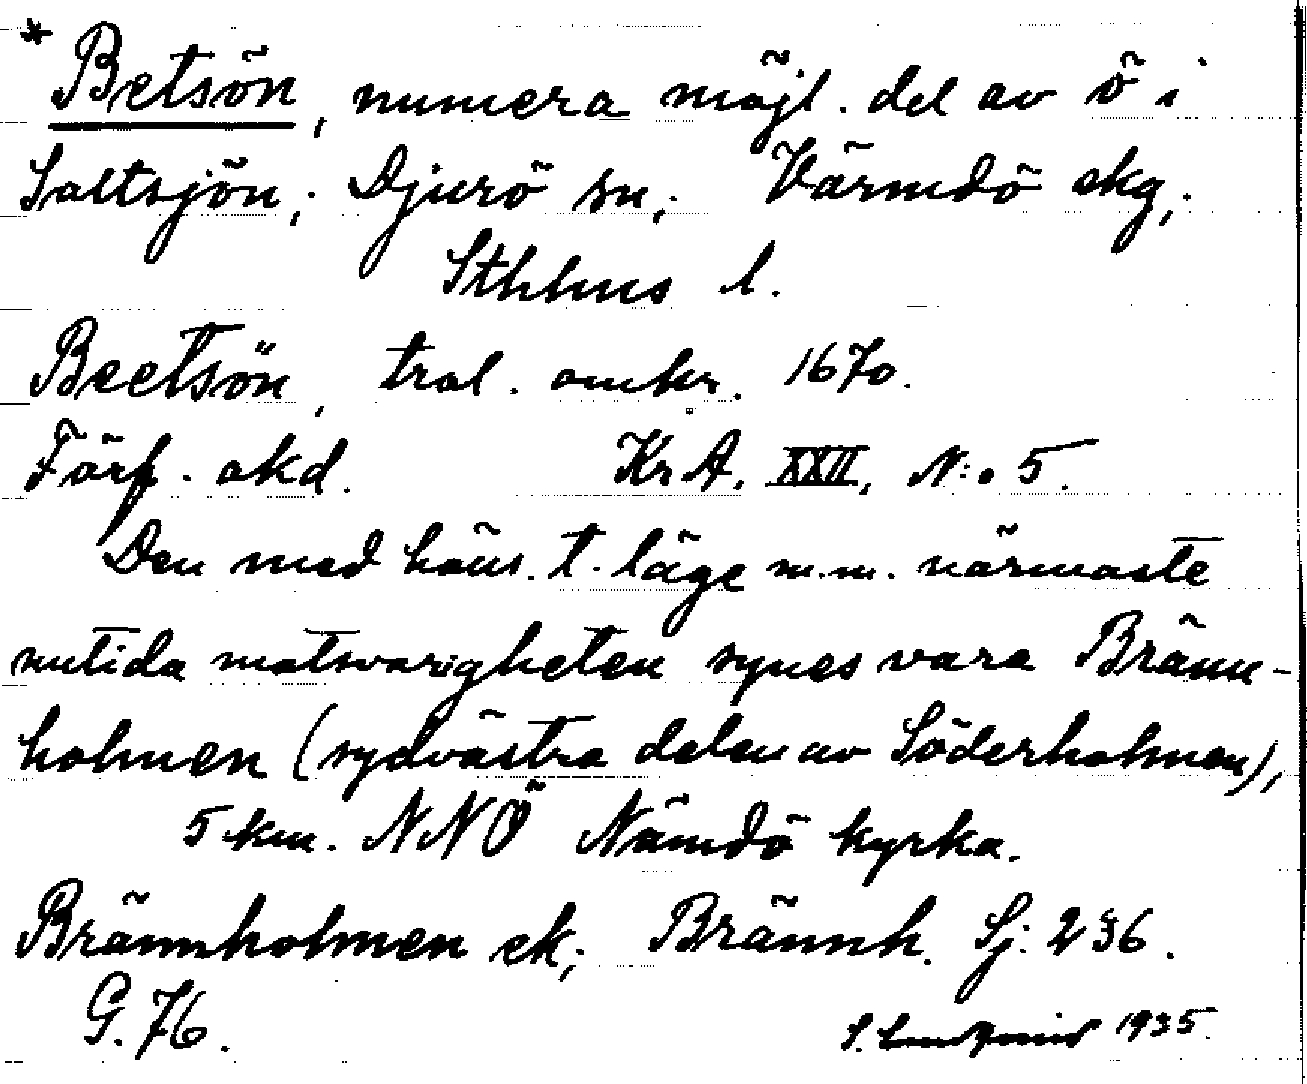 * Betsön, numera möjl. del av ö i
Saltsjön; Djurö sn; Värmdö skg;
Sthlms l.
Beetsön, tral. omkr. 1670.
Förf. okd. KrA. XXII, N:o 5.
Den med häns. t. läge m.m. närmaste
nutida motsvarigheten synes vara Bränn-
holmen (sydvästra delen av Söderholmen),
5 km. NNÖ Nämdö kyrka.
Brännholmen ek; Brännh. Sj: 236.
G. 76.
S. 1935.